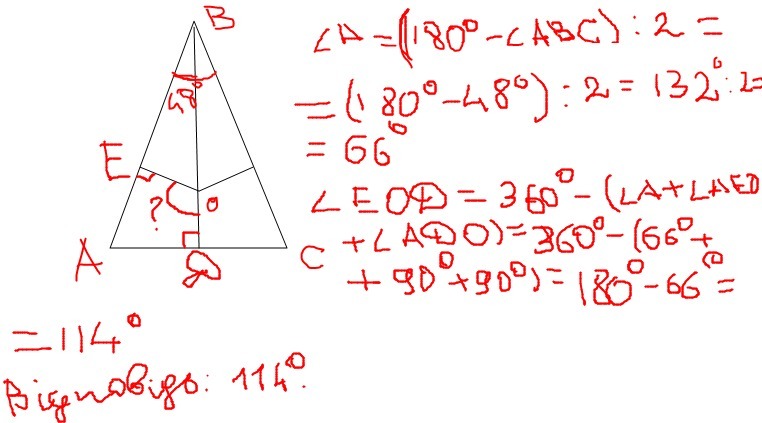 B
48°
E
?
O
A
D
C
∠A = (180° - ∠ABC) : 2 =
= (180° - 48°) : 2 = 132° : 2 =
= 66°
∠EOD = 360° - (∠A + ∠AEO
+ ∠ADO) = 360° - (66° +
+ 90° + 90°) = 180° - 66° =
= 114°
Відповідь: 114°.